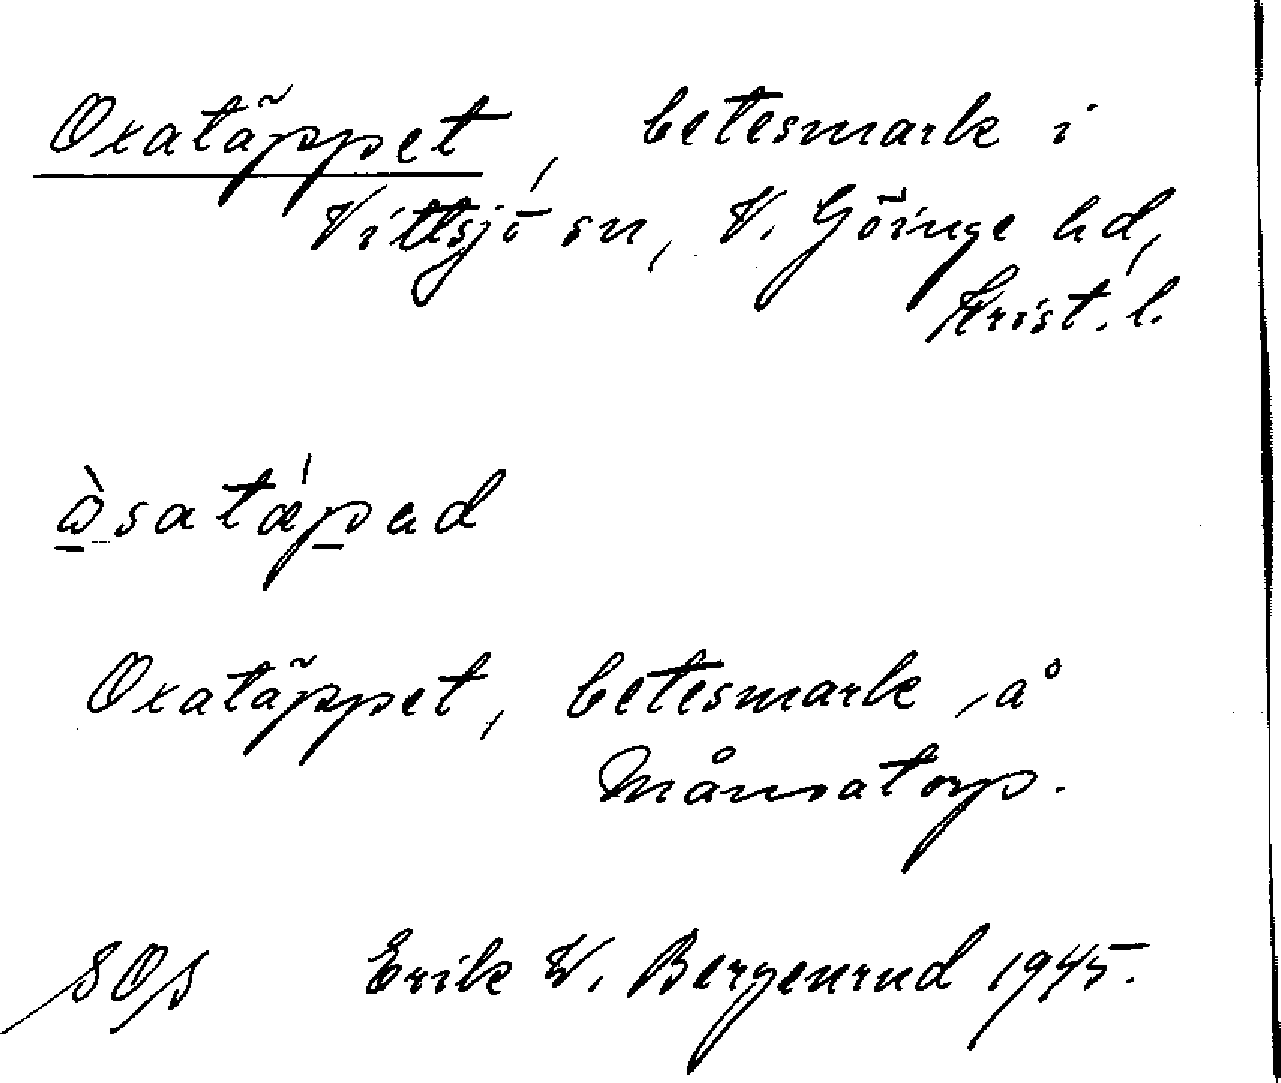 Oxatäppet, betesmark i
Vittsjö sn, V. Göinge hd,
Krist. l.
Oxatäppet, betesmark å
Månsatorp.
Erik W. Bergenrud 1945.